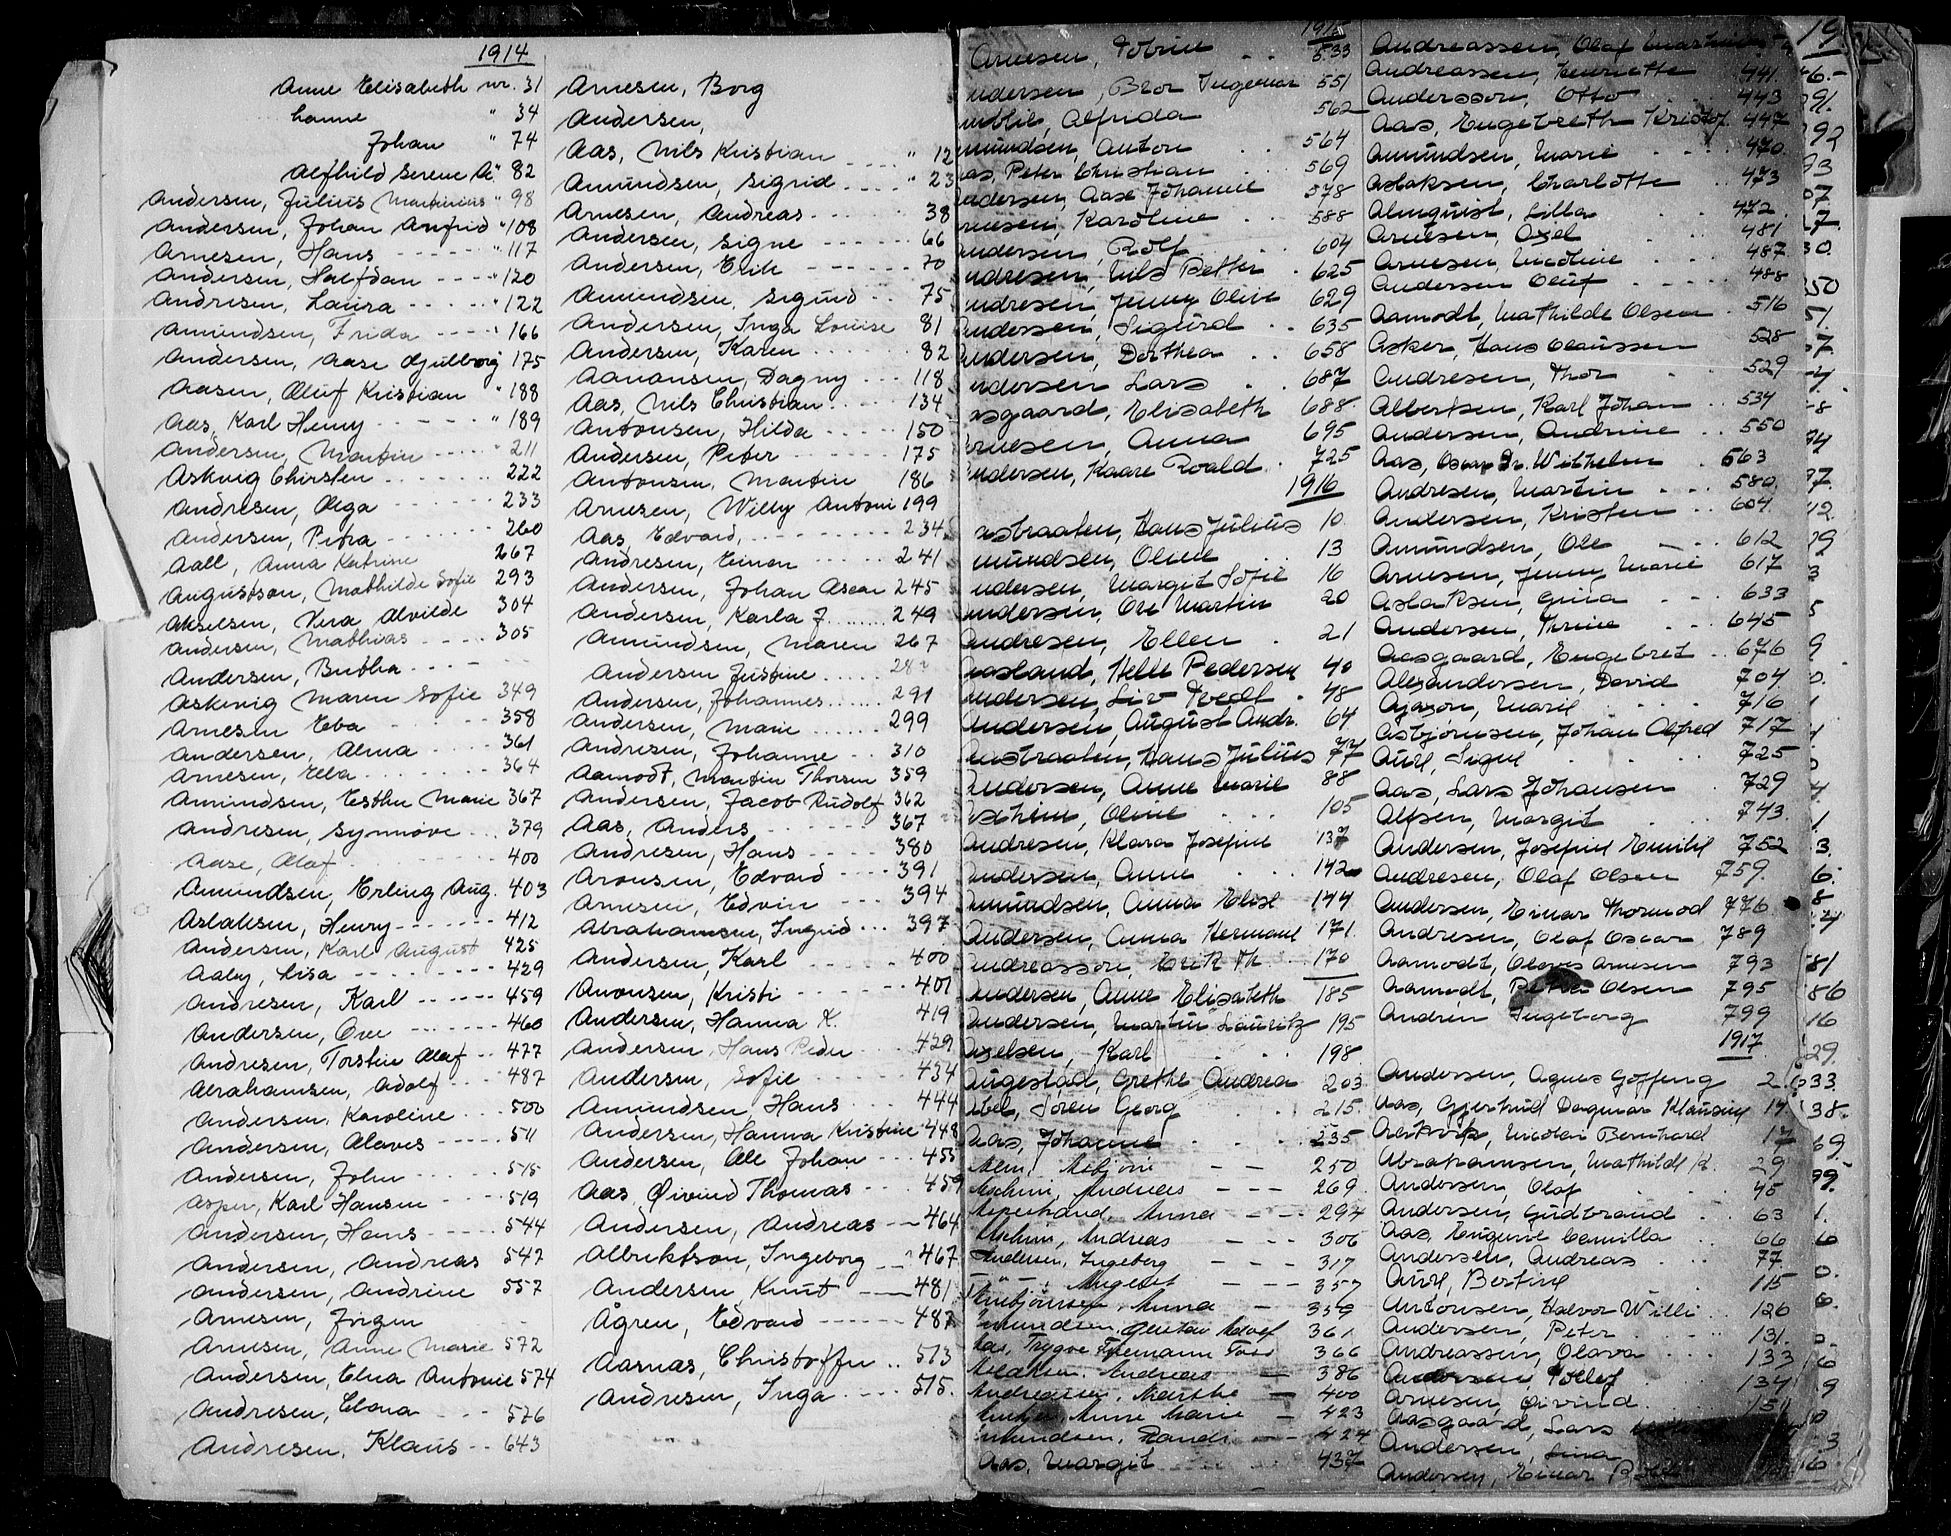 1914
Anne Elisabeth nr. 31
" 34
Johan " 74
Alfhild Serene A. " 82
Andersen, Julius Martinius " 98
Andersen, Johan Arnfrid " 108
Arnesen, Hans " 117
Andersen, Halfdan " 120
Andresen, Laura " 122
Amundsen, Frida " 166
Andersen, Aase Gjulborg 175
Aasen, Oluf Kristian " 188
Aas, Karl Henry " 189
Andersen, Martin " 211
Askvig Christen 222
Andresen, Olga 233
Andersen, Petra 260
Aall, Anna Katrine 267
Augustson, Mathilde Sofie 293
Akselsen, Vera Alvilde 304
Andersen, Mathias 305
Andersen, Bertha
Askevig Maren Sofie 349
Arnesen Eva 358
Andersen, Alma 361
Arnesen, Ella 364
Amundsen, Esther Marie 367
Andresen, Synnøve 379
Aase, Olaf 400
Amundsen, Erling Aug. 403
Aslaksen, Henry 412
Andersen, Karl August 425
Aaby, Lisa 429
Andresen, Karl 459
Andersen, Ove 460
Andresen, Torstein Olaf 477
Abrahamsen, Adolf 487
Andersen, Karoline 500
Andersen, Olaves 511
Andersen, John 515
Asper, Karl Hansen 519
Andersen, Hans 544
Andersen, Andreas 547
Andersen, Andrine 557
Arnesen, Jørgen
Arnesen, Anne Marie 572
Andersen, Elna Antonie 574
Andresen, Elona 576
Andresen, Klaus 643
Arnesen, Borg
Andersen,
Aas, Nils Kristian " 12
Amundsen, Sigrid " 23
Arnesen, Andreas 38
Andersen, Signe 66
Andersen, Erik 70
Amundsen, Sigurd 75
Andersen, Inga Louise 81
Andersen, Karen 82
Aanansen, Dagny 118
Aas, Nils Christian 134
Antonsen, Hilda 150
Andersen, Peter 175
Antonsen, Martin 186
Arnesen, Willy Antoni 199
Aas, Edvard, 234
Andresen, Einar 241
Andersen, Johan Oscar 245
Andersen, Karla J. 249
Amundsen, Maren 267
Andersen Justine
Andersen, Johannes 291
Andersen, Marie 299
Andresen, Johanne 310
Aamodt, Martin Thorsen 359
Andersen, Jacob Rudolf 362
Aas, Anders 367
Andresen, Hans 380
Aronsen, Edvard 391
Arnesen, Edvin 394
Abrahamsen, Ingrid 397
Andersen, Karl 400
Aronsen, Kristi 401
Andersen, Hanna K. 419
Andersen, Hans Peder 429
Andersen, Sofie 434
Amundsen, Hans 444
Andersen, Hanna Kristine 448
Andersen, Ole Johan 455
Aas, Øivind Thomas 459
Andersen, Andreas 464
Albriktson, Ingeborg 467
Andersen, Knut 481
Ågren, Edvard 487
Aarnas, Christoffer 513
Andresen, Inga 515.
1915
Arnesen, 533
ndersen, Bror Ingemar 551
Alfrida 562
mundsen, Anton 564
as, Peter Christian 569
ndersen, Aase Johanne 578
rnesen, Karoline 588
ndersen, Rolf 604
ndresen, Nils Petter 625
ndresen, Jenny Olive 629
ndersen, Sigurd 635
ndersen, Dorthea 658
ndersen Lars 687
asgaard, Elisabeth 688
rnesen, Anna 695
ndersen, Kaare Roald 725
1916
astraaten, Hans Julius 10
mundsen, Oline 13
ndersen, Margit Sofie 16
ndersen, Ole Martin 20
Andresen, Ellen 21
Aasland, Helle Pedersen 40
Andersen, Liv Tvedt 48
Andersen, August Andr. 64
Aastraaten, Hans Julius 77
Andersen, Anne Marie 88
Aschim, Oline 105
Andresen, Klara Josefine 137
Andersen, Anne 142
Amundsen, Anna Elise 144
Andersen, Anna Hermane 171
Andreasson, Erik Th. 170
Andersen, Anne Elisabeth 185
Andersen, Martin Lauritz 195
Axelsen, Karl 198
Augestad, Grethe Andrea 203
Abel, Søren Georg 215
Aas, Johanne 235
Alm, Asbjørn 250
Aschim, Andreas 269
Anna 294
Aschim, Andreas 306
Andersen, Ingeborg 317
" Margret 357
Anna 359
mundsen, Gustav Adolf 361
Aas, Trygve 366
Andreas 386
Andreassen, Marthe 400
Anne Marie 423
mundsen, Randi 424
Aas, Margit 437
Andreassen, Olaf
Andreassen, Henriette 441
Andersson, Otto 443
Aas, Engebreth Kristof. 447
Amundsen, Marie 470
Aslaksen, Charlotte 473
Almquist, Lilla 472
Arnesen, Axel 481
Arnesen, Nicoline 487
Andersen Oluf 488
Aamodt, Mathilde Olsen 516
Asker, Hans Claussen 528
Andresen, Thor 529
Albertsen, Karl Johan 534
Andersen, Andrine 550
Aas, Oscar Fr. Wilhelm 563
Andresen, Martin 580
Andersen, Kristen 604
Amundsen, Ole 612
Arnesen, Jenny Marie 617
Aslaksen, Gina 633
Andersen, Thrine 645
Aasgaard, Engebret 676
Alexandersen, David 704
Ajaxon, Marie 716
Asbjørnsen, Johan Alfred 717
Auve, Signe 725
Aas, Lars Johansen 729
Alfsen, Margit 743
Andersen, Josefine Emilie 752
Andresen, Olaf Olsen 759
Andersen, Einar Thormod 776
Andresen, Olaf Oscar 789
Aamodt, Olaves Arnesen 793
Aamodt, Petra Olsen 795
Andren Ingeborg 799
1917
Andersen, Agnes Goffeng 2
Aas, Gjertrud Dagmar Klausine 14
Nicolai Bernhard 17
Abrahamsen, Mathilde K. 29
Andersen, Olaf 45
Andersen, Gudbrand 63
Aas, Eugenie Camilla 66
Andersen, Andreas 77
Auve, Bertine 115
Antonsen, Halvor Willi 126
Andersen, Peter 131
Andreassen, Olava 133
Andersen Tollef 134
Arnesen, Øivind 151
Aasgaard, Lars
Andersen, Lina
Andersen, Einar